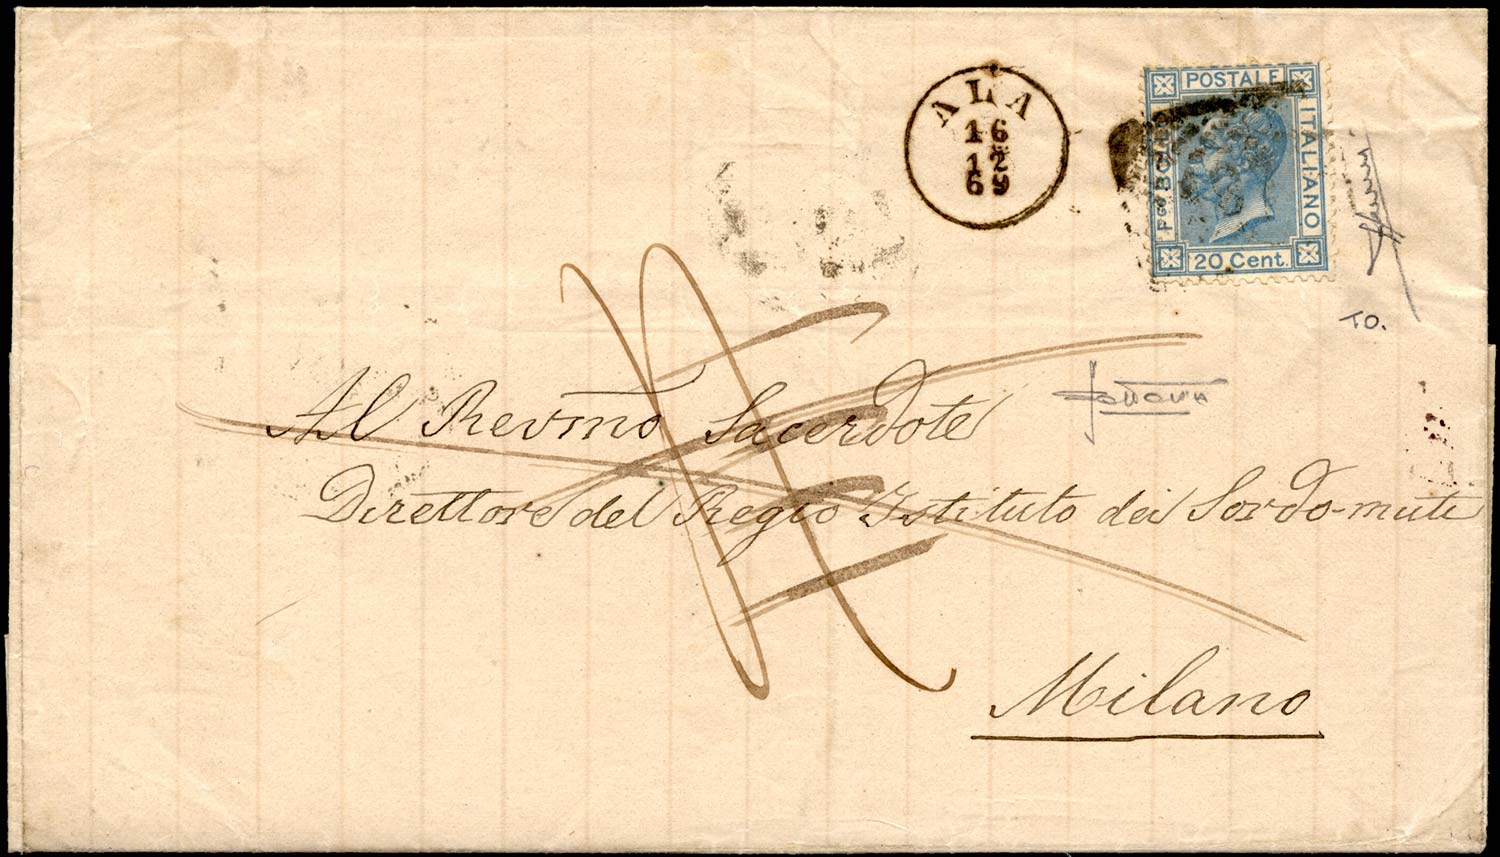 ALA
16
12
69
POSTALE
Pco BOLLO
ITALIANO
20 Cent.
TO.
Al Revmo Sacerdote
Direttore del Regio Istituto dei Sordo-muti
Milano